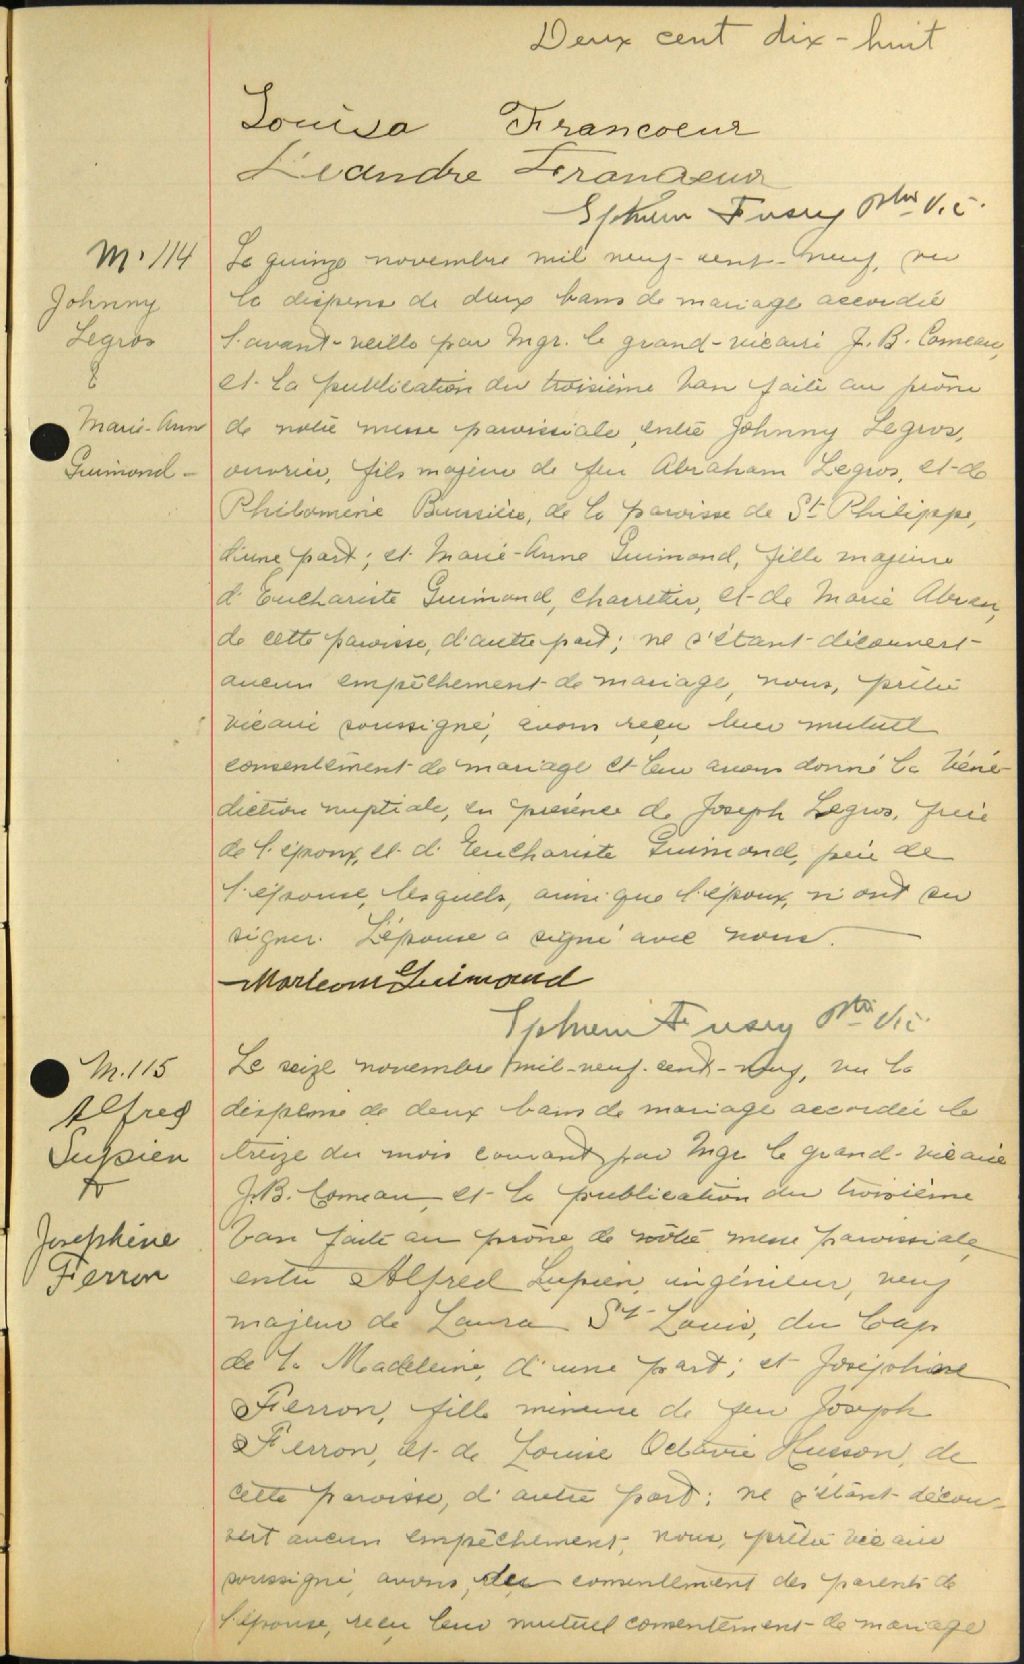 Deux cent dix-huit
Louisa Francoeur
Léandre Francoeur
Ephrem Fusey Ptre Vic.
M. 114
Johnny
Legros
&
Marie-Anne
Guimond-
Le quinze novembre mil neuf-cent-neuf, vu
la dispense de deux bans de mariage accordée
l'avant-veille par Mgr. le grand-vicaire J. B. Comeau,
et la publication du troisième ban faite au prône
de notre messe paroissiale, entre Johnny Legros,
ouvrier, fils majeur de feu Abraham Legros, et de
Philomène Bussière, de la paroisse de St Philippe,
d'une part; et Marie-Anne Guimond, fille majeure
d'Euchariste Guimond, charretier, et de Marie Abran,
de cette paroisse, d'autre part; ne s'étant découvert
aucun empêchement de mariage, nous, prêtre
vicaire soussigné, avons reçu leur mutuel
consentement de mariage et leur avons donné la béné-
diction nuptiale, en présence de Joseph Legros, frère
de l'époux, et d'Euchariste Guimond, père de
l'épouse, lesquels, ainsi que l'époux, n'ont su
signer. L'épouse a signé avec nous.
Marieanne Guimond
Ephrem Fusey Ptre Vic.
M. 115
Alfred
Lupien
&
Josephine
Ferron
Le seize novembre mil-neuf-cent-neuf, vu la
dispense de deux bans de mariage accordée le
treize du mois courant par Mgr le grand-vicaire
J. B. Comeau, et la publication du troisième
ban faite au prône de notre messe paroissiale,
entre Alfred Lupien, ingénieur, veuf
majeur de Laura St-Louis, du Cap
de la Madeleine, d'une part; et Joséphine
Ferron, fille mineure de feu Joseph
Ferron, et de Louise Octavie Husson, de
cette paroisse, d'autre part; ne s'étant décou-
vert aucun empêchement, nous, prêtre vicaire
soussigné, avons, du consentement des parents de
l'épouse, reçu leur mutuel consentement de mariage